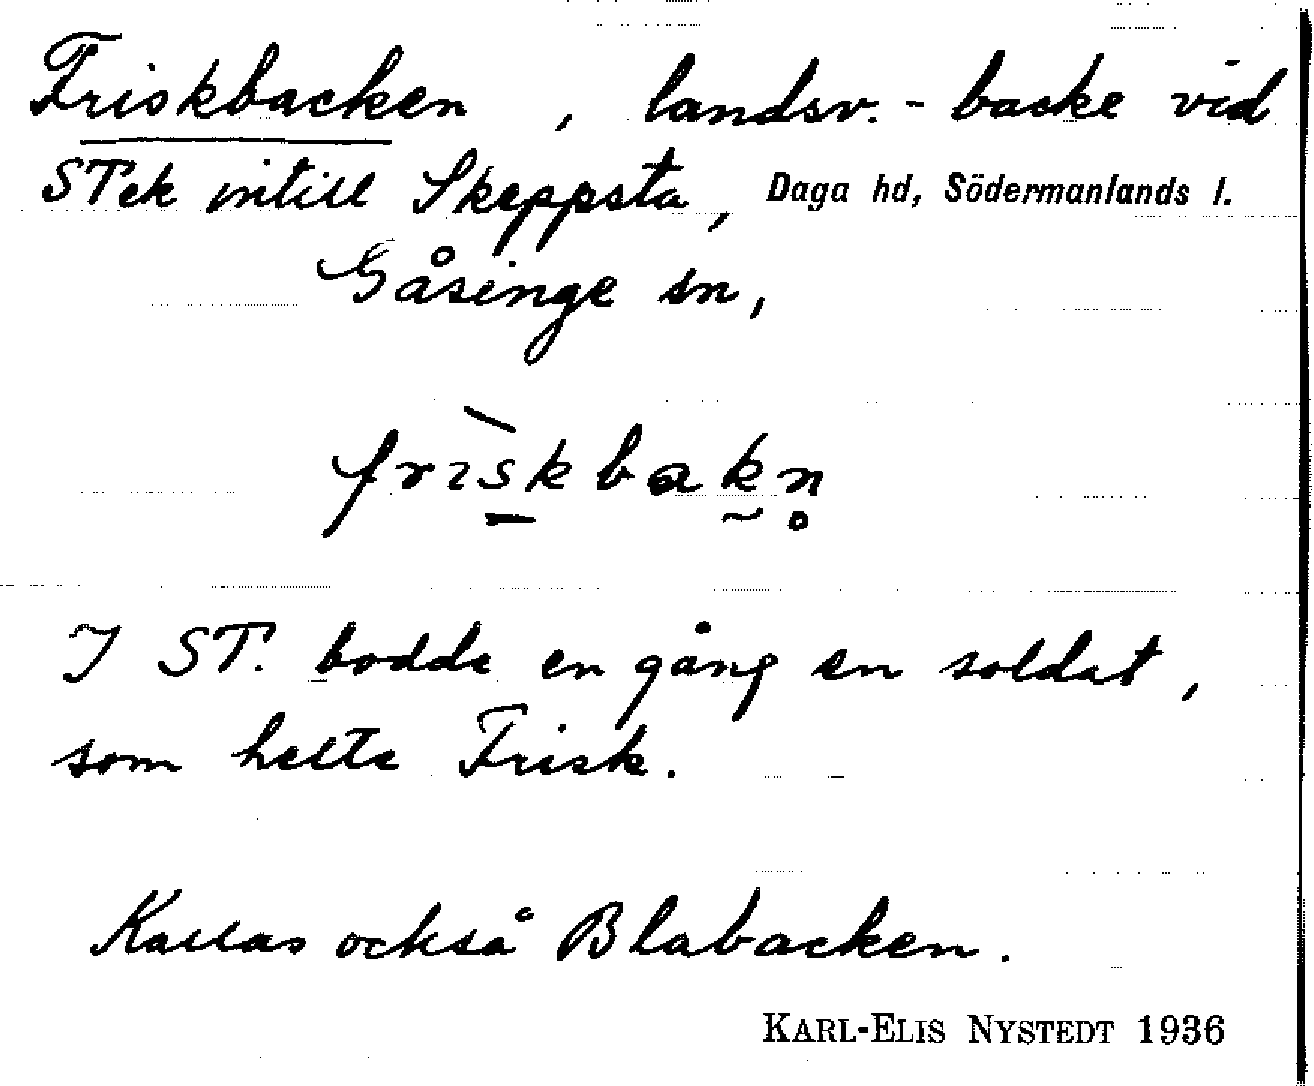 Friskbacken, landsv.-backe vid
STek intill Skeppsta, Daga hd, Södermanlands l.
Gåsinge sn,
frìskbakn̥
I ST. bodde en gång en soldat,
som hette Frisk.
Kallas också Blabacken.
KARL-ELIS NYSTEDT 1936